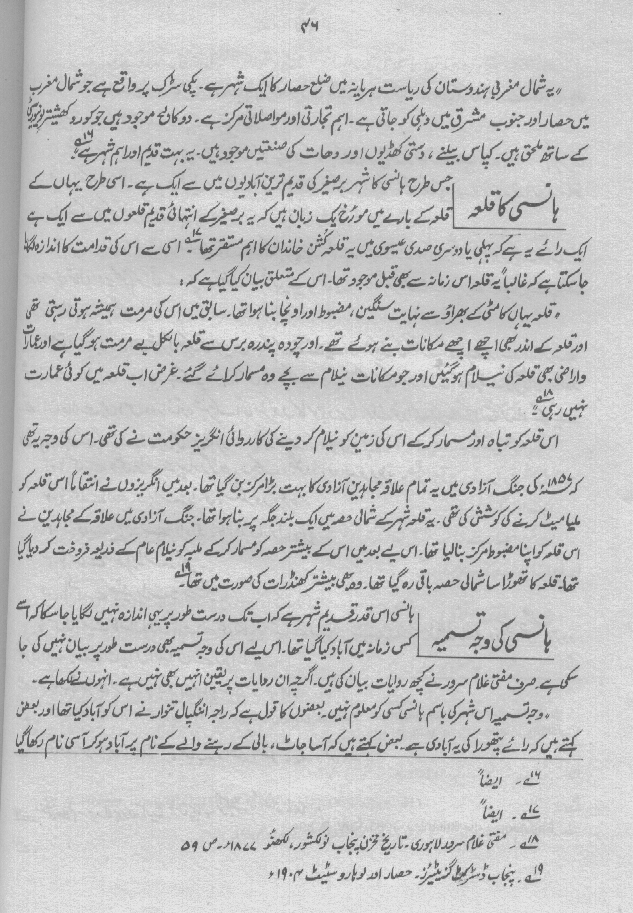 ۴۶
"یہ شمال مغربی ہندوستان کی ریاست ہریانہ میں ضلع حصار کا ایک شہر ہے۔ پکی سڑک پر واقع ہے جو شمال مغرب
میں حصار اور جنوب مشرق میں دہلی کو جاتی ہے۔ اہم تجارتی اور مواصلاتی مرکز ہے۔ دو کالج موجود ہیں جو کوروکھیشتر یونیورسٹی
کے ساتھ ملحق ہیں۔ کپاس بیلنے، دستی کھڈیوں اور دھات کی صنعتیں موجود ہیں۔ یہ بہت قدیم اور اہم شہر ہے"۱۶
ہانسی کا قلعہ
جس طرح ہانسی کا شہر برصغیر کی قدیم ترین آبادیوں میں سے ایک ہے۔ اسی طرح یہاں کے
قلعہ کے بارے میں مورخ یک زبان ہیں کہ یہ برصغیر کے انتہائی قدیم قلعوں میں سے ایک ہے
ایک رائے یہ ہے کہ پہلی یا دوسری صدی عیسوی میں یہ قلعہ کشن خاندان کا اہم مستقر تھا۱۷ اسی سے اس کی قدامت کا اندازہ لگایا
جاسکتا ہے کہ غالباً یہ قلعہ اس زمانہ سے بھی قبل موجود تھا۔ اس کے متعلق بیان کیا گیا ہے کہ:
"قلعہ یہاں کا مٹی کے بھراؤ سے نہایت سنگین، مضبوط اور اونچا بنا ہوا تھا۔ سابق میں اس کی مرمت ہمیشہ ہوتی رہتی تھی
اور قلعہ کے اندر بھی اچھے اچھے مکانات بنے ہوئے تھے۔ اور چودہ پندرہ برس سے قلعہ بالکل بے مرمت ہو گیا ہے اور عمارات
واراضی بھی قلعہ کی نیلام ہوگئیں اور جو مکانات نیلام سے بچے وہ مسمار کرائے گئے۔ غرض اب قلعہ میں کوئی عمارت
نہیں رہی"۱۸
اس قلعہ کو تباہ اور مسمار کرکے اس کی زمین کو نیلام کر دینے کی کارروائی انگریز حکومت نے کی تھی۔ اس کی وجہ یہ تھی
کہ ۱۸۵۷ء کی جنگ آزادی میں یہ تمام علاقہ مجاہدین آزادی کا بہت بڑا مرکز بن گیا تھا۔ بعد میں انگریزوں نے انتقاماً اس قلعہ کو
ملیامیٹ کرنے کی کوشش کی تھی۔ یہ قلعہ شہر کے شمالی حصہ میں ایک بلند جگہ پر بنا ہوا تھا۔ جنگ آزادی میں علاقے کے مجاہدین نے
اس قلعہ کو اپنا مضبوط مرکز بنالیا تھا۔ اس لیے بعد میں اس کے بیشتر حصہ کو مسمار کرکے ملبہ کو نیلام عام کے ذریعہ فروخت کر دیا گیا
تھا۔ قلعہ کا تھوڑا سا شمالی حصہ باقی رہ گیا تھا۔ وہ بھی بیشتر کھنڈرات کی صورت میں تھا۱۹۔
ہانسی کی وجہ تسمیہ
ہانسی اس قدر قدیم شہر ہے کہ اب تک درست طور پر یہی اندازہ نہیں لگایا جاسکا کہ اسے
کس زمانہ میں آباد کیا گیا تھا۔ اس لیے اس کی وجہ تسمیہ بھی درست طور پر بیان نہیں کی جا
سکی ہے۔ صرف مفتی غلام سرور نے کچھ روایات بیان کی ہیں۔ اگرچہ ان روایات پر یقین انہیں بھی نہیں ہے۔ انہوں نے لکھا ہے۔
"وجہ تسمیہ اس شہر کی باسم ہانسی کسی کو معلوم نہیں۔ بعضوں کا قول ہے کہ راجہ اننگپال تنوار نے اس کو آباد کیا تھا اور بعض
کہتے ہیں کہ رائے پتھورا کی یہ آبادی ہے۔ بعض کہتے ہیں کہ آسا جاٹ، بالی کے رہنے والے کے نام پر آباد ہو کر آسی نام رکھا گیا
۱۶۔ ایضاً
۱۷۔ ایضاً
۱۸۔ مفتی غلام سرور لاہوری۔ تاریخ مخزن پنجاب نولکشور، لکھنؤ ۱۸۷۷ء۔ ص ۵۹
۱۹۔ پنجاب ڈسٹرکٹ گزیٹیرز۔ حصار اور لوہارو سٹیٹ ۱۹۰۴ء